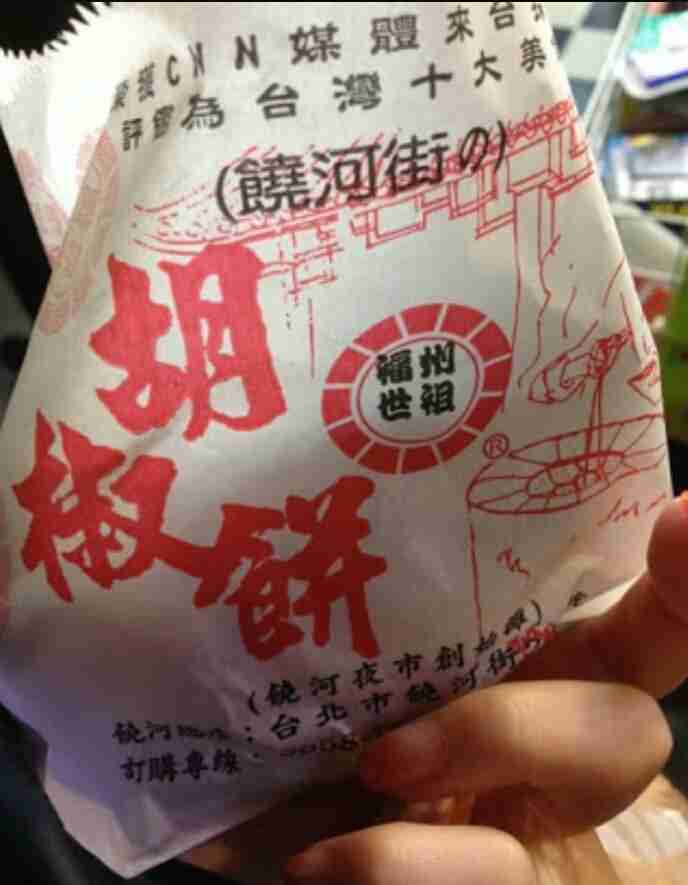 榮獲CNN媒體來台
評審為台灣十大美
(饒河街の)
胡椒餅
福州
世祖
®
(饒河夜市創始攤)
饒河：台北市饒河街
訂購專線：